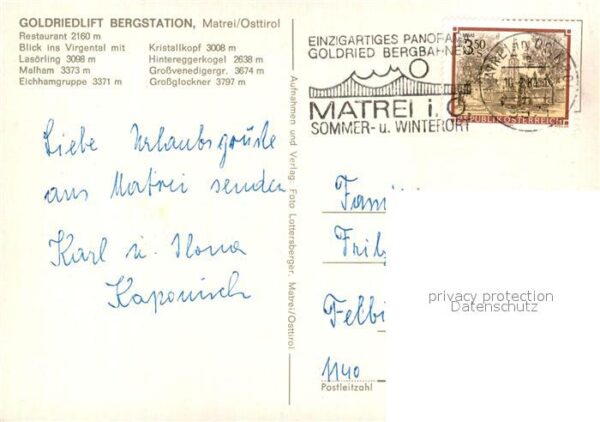 GOLDRIEDLIFT BERGSTATION, Matrei/Osttirol
Restaurant 2160 m
Blick ins Virgental mit
Lasörling 3098 m
Malham 3373 m
Eichhamgruppe 3371 m
Kristallkopf 3008 m
Hintereggerkogel 2638 m
Großvenedigergr. 3674 m
Großglockner 3797 m
EINZIGARTIGES PANORAMA
GOLDRIED BERGBAHNEN
MATREI i. O
SOMMER- u. WINTERORT
3.50
REPUBLIK ÖSTERREICH
Aufnahmen und Verlag: Foto Lottersberger, Matrei/Osttirol
Liebe Urlaubsgrüße
aus Matrei senden
Karl u. Ilona
Fami
Felbi
1140
Postleitzahl
privacy protection
Datenschutz